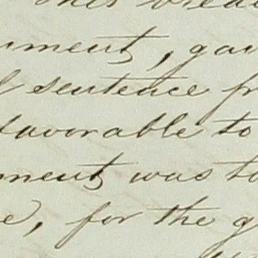 ument, gav
sentence fr
favorable to
ment was to
e, for the g